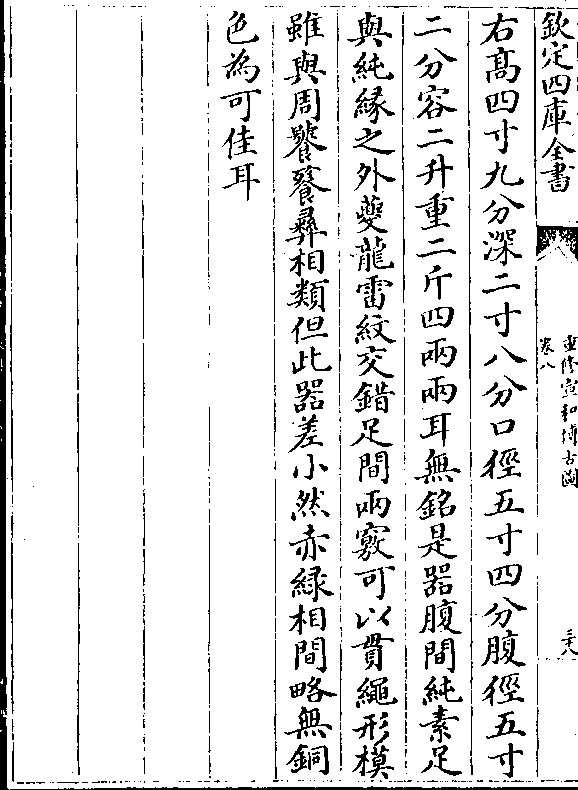 欽定四庫全書
重修宣和博古圖
卷八
三八
右髙四寸九分深二寸八分口徑五寸四分腹徑五寸
二分容二升重二斤四兩兩耳無銘是器腹間純素足
與純縁之外夔龍雷紋交錯足間兩竅可以貫繩形模
雖與周饕餮彞相類但此器差小然赤緑相間略無銅
色為可佳耳